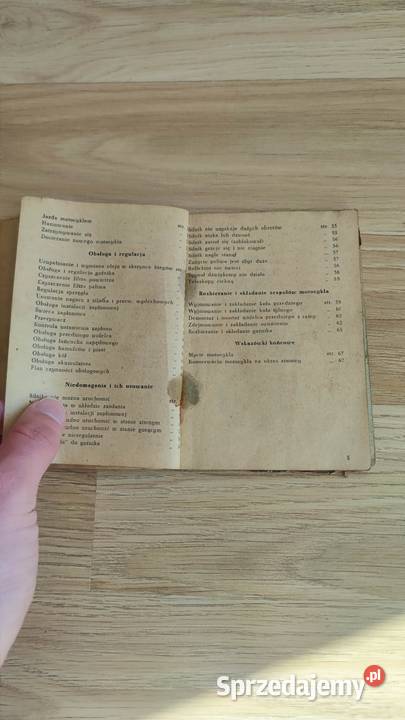 Jazda motocyklem
Hamowanie
Zatrzymywanie się
Docieranie nowego motocykla
Obsługa i regulacja
Uzupełnianie i wymiana oleju w skrzynce biegów
Obsługa i regulacja gaźnika
Czyszczenie filtru powietrza
Czyszczenie filtra paliwa
Regulacja sprzęgła
Usuwanie nagaru z tłumika i przew. wydechowych
Obsługa instalacji zapłonowej
Świeca zapłonowa
Przerywacz
Kontrola ustawienia zapłonu
Obsługa przedniego widelca
Obsługa łańcucha napędowego
Obsługa hamulców i piast
Obsługa kół
Obsługa akumulatora
Plan czynności obsługowych
Niedomagania i ich usuwanie
Silnika nie można uruchomić str.
w układzie zasilania
instalacji zapłonowej
uruchomić w stanie zimnym
uruchomić w stanie gorącym
nieregularnie
do gaźnika
Silnik nie uzyskuje dużych obrotów str. 55
Silnik stuka lub dzwoni „ 55
Silnik zatarł się (zablokował) „ 56
Silnik gaśnie i nie ciągnie „ 56
Silnik nagle stanął „ 57
Zużycie paliwa jest zbyt duże „ 57
Reflektor nie świeci „ 58
Sygnał dźwiękowy nie działa „ 58
Teleskopy ciekną „ 58
Rozbieranie i składanie zespołów motocykla
Wyjmowanie i zakładanie koła przedniego str. 59
Wyjmowanie i zakładanie koła tylnego „ 60
Demontaż i montaż widelca przedniego z ramy „ 60
Zdejmowanie i zakładanie „ 62
Rozbieranie i składanie gaźnika „ 65
Wskazówki końcowe
Mycie motocykla str. 67
Konserwacja motocykla na okres zimowy „ 67
5
Sprzedajemy.pl